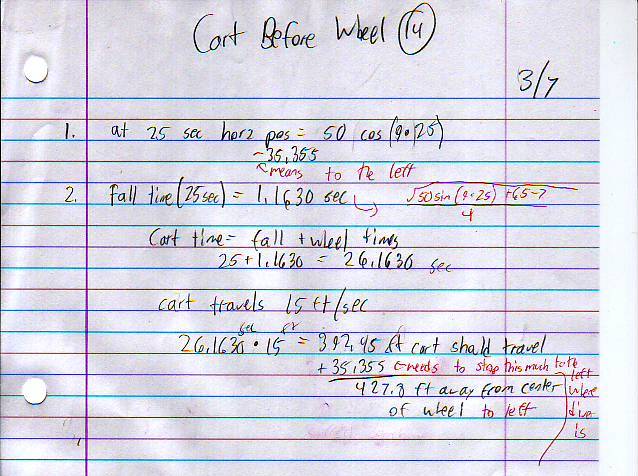 Cart Before Wheel (14)
3/7
1. at 25 sec horz pos = 50 cos (9•25)
-35,355
means to the left
2. Fall time (25 sec) = 1,1630 sec √50sin (9•25) +65-7
4
Cart time = fall + wheel times
25+1.1630 = 26.1630 sec
cart travels 15 ft/sec
sec ft
26.1630 • 15 = 392,45 ft cart should travel
+35,355 needs to stop this much to the left where dive is
427.8 ft away from center
of wheel to left